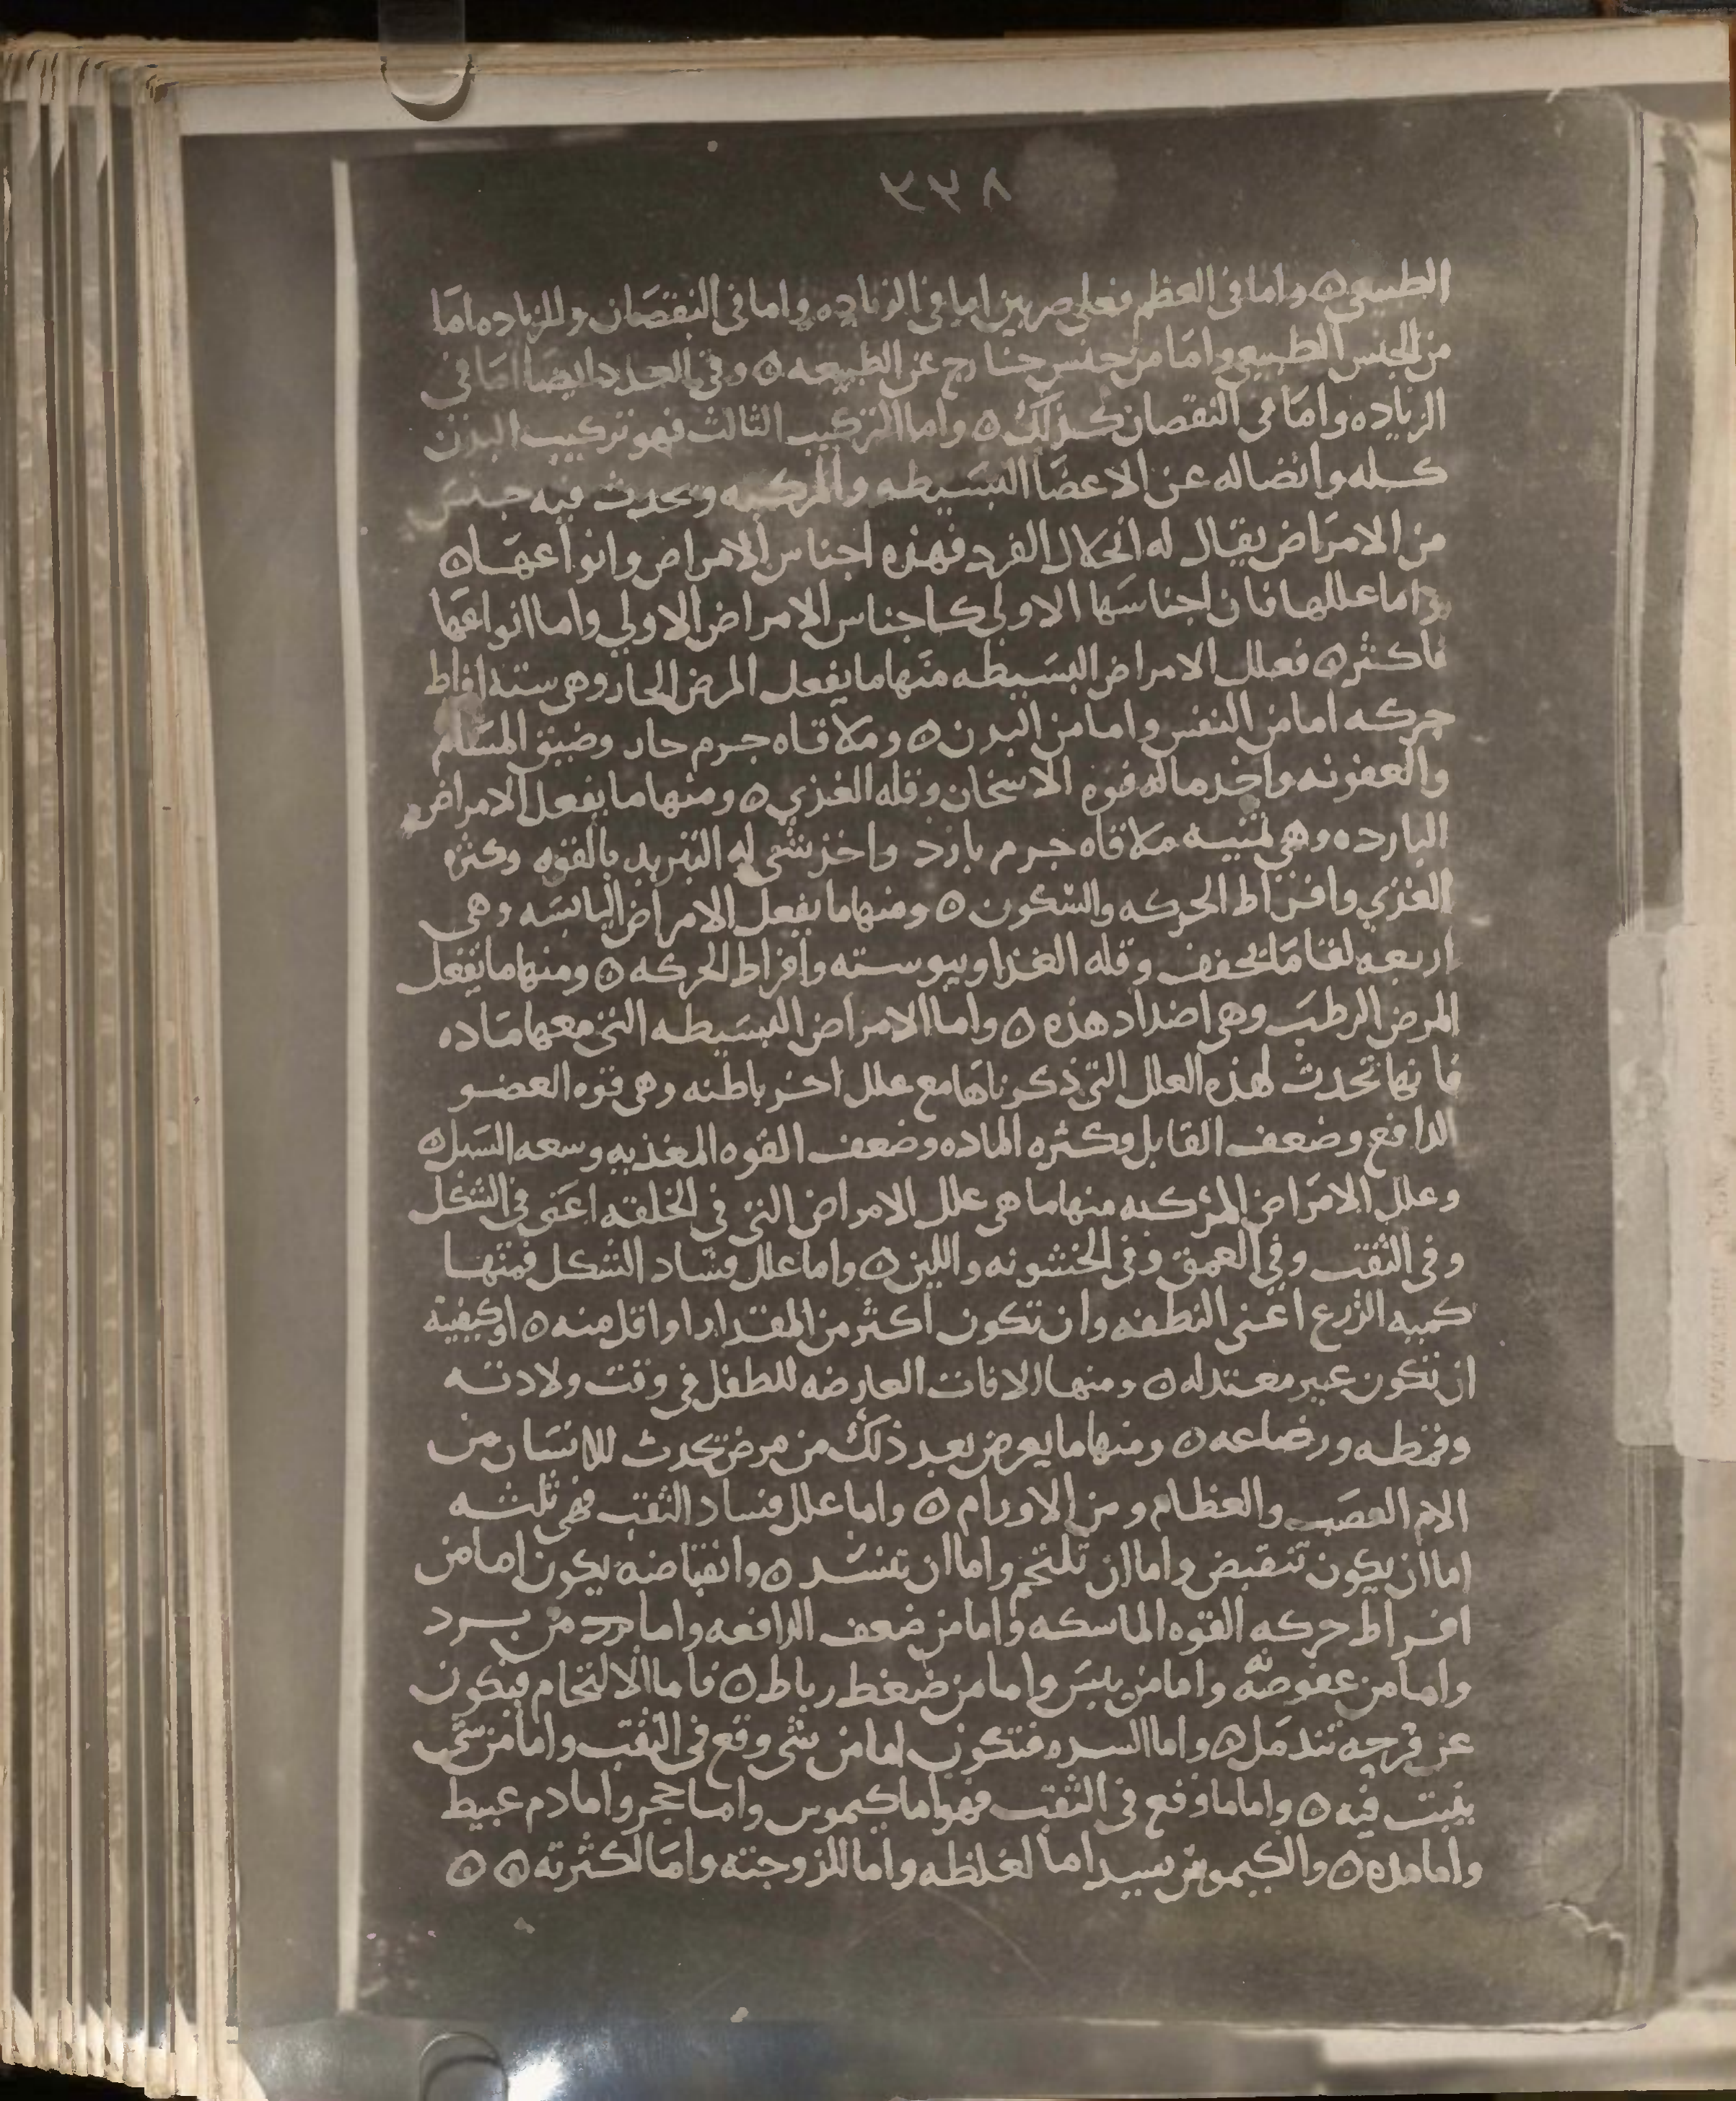 ٣٣٨
الطبيعي ۞ واما في العظم فعلى ضربين اما في الزياده واما في النقصان وللزياده اما
من الجنس الطبيعي واما من جنس خارج عن الطبيعه ۞ وفي العدد ايضا اما في
الزياده واما في النقصان كذلك ۞ واما التركيب الثالث فهو تركيب البدن
كله واتصاله عن الاعضا البسيطه والمركبه ويحدث فيه جنس
من الامراض يقال له انحلال الفرد فهذه اجناس الامراض وانواعها ۞
واما عللها فان اجناسها الاولى كاجناس الامراض الاولي واما انواعها
فاكثر ۞ فعلل الامراض البسيطه منها ما يفعل المرض الحار وهي ستة افراط
حركه اما من النفس واما من البدن ۞ وملاقاه جرم حار وضيق المسام
والعفونه واخد ماله قوه الاسخان وقله الغذي ۞ ومنها ما يفعل الامراض
البارده وهي ملاقاه جرم بارد واخذ شي له التبريد بالقوه وكثره
الغذي وافراط الحركه والسكون ۞ ومنها ما يفعل الامراض اليابسه وهي
اربعه لقا ما يجفف وقله الغذا ويبوسته وافراط الحركه ۞ ومنها ما يفعل
المرض الرطب وهي اضداد هذه ۞ واما الامراض البسيطه التي معها ماده
فانها تحدث لهذه العلل التي ذكرناها مع علل اخر باطنه وهي قوه العضو
الدافع وضعف القابل وكثره الماده وضعف القوه المغذيه وسعه السبل ۞
وعلل الامراض المركبه منها ما هي علل الامراض التي في الخلقه اعني في الشكل
وفي الثقب وفي العمق وفي الخشونه واللين ۞ واما علل فساد الشكل فمنها
كميه الزرع اعني النطفه وان تكون اكثر من المقدار او اقل منه ۞ او كيفيته
ان تكون غير معتدله ۞ ومنها الافات العارضه للطفل في وقت ولادته
وقمطه ورضاعه ۞ ومنها ما يعرض بعد ذلك من مرض تحدث للانسان من
الام العصب والعظام ومن الاورام ۞ واما علل فساد الثقب فهي ثلثه
اما ان يكون تنقبض واما ان تلتحم واما ان تنسد ۞ وانقباضه يكون اما من
افراط حركه القوه الماسكه واما من ضعف الدافعه واما من برد
واما من عفوصه واما من يبس واما من ضغط رباط ۞ فاما الالتحام فيكون
عن قرحه تندمل ۞ واما السده فتكون اما من شي وقع في الثقب واما من شي
ينبت فيه ۞ واما ما وقع في الثقب فهو اما كيموس واما حجر واما دم عبيط
واما مده ۞ والكيموس يسد اما لغلظه واما للزوجته واما لكثرته ۞ ۞